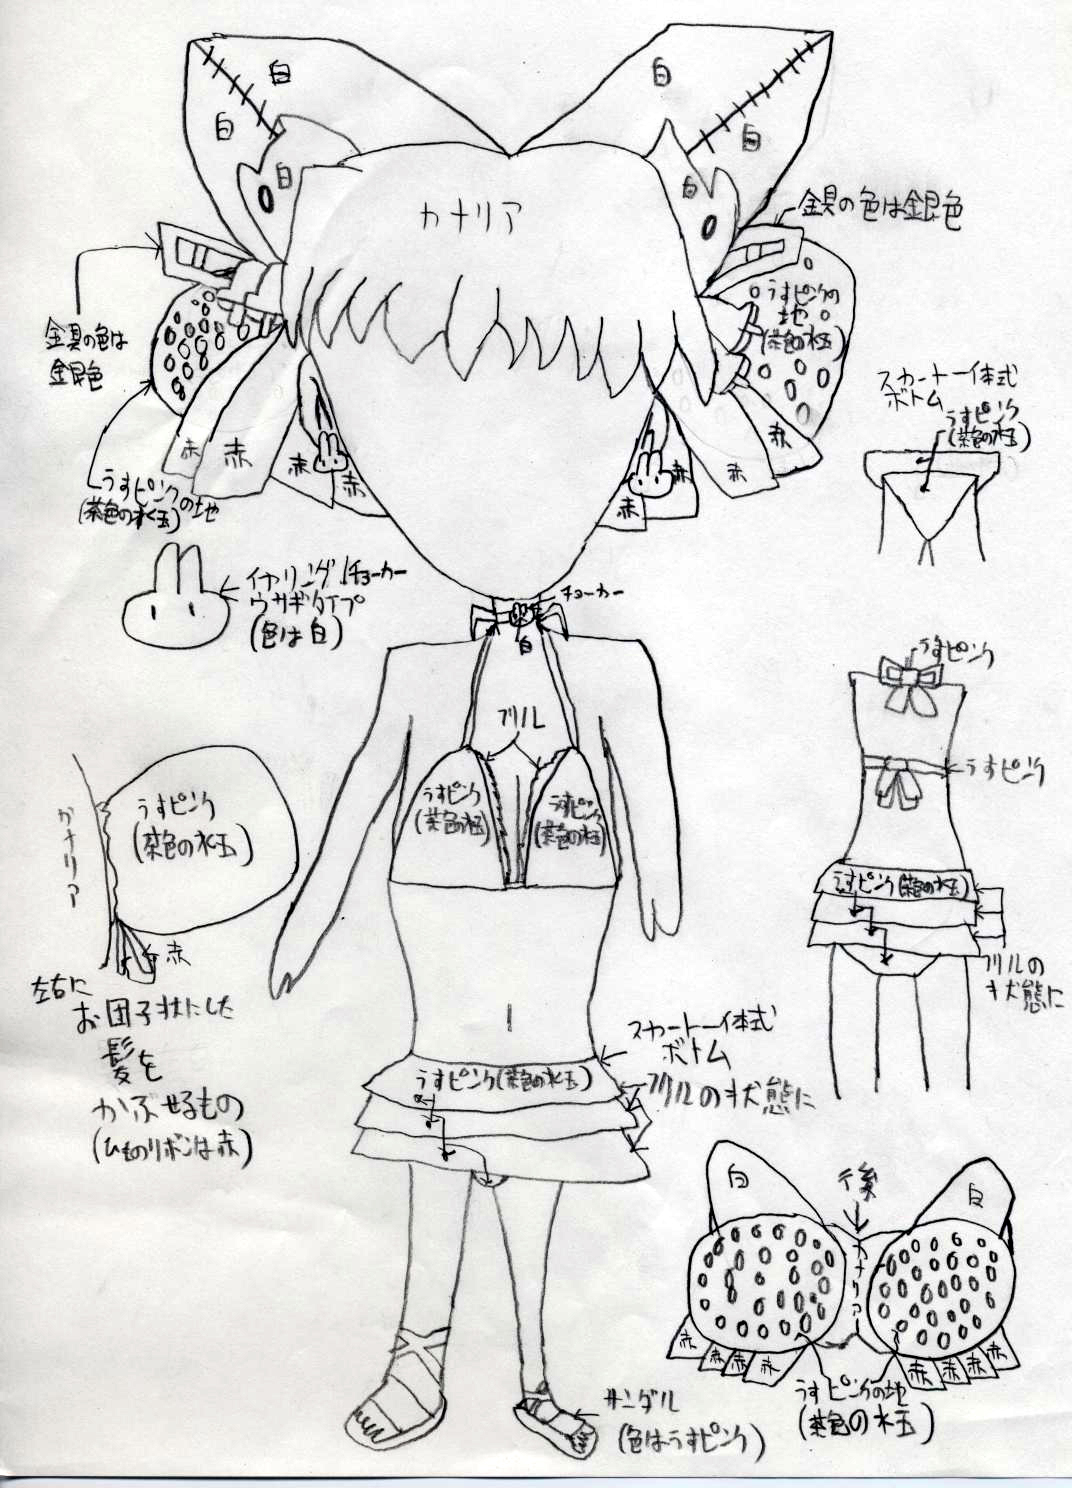 白
白
白
白
白
白
カナリア
金具の色は銀色
金具の色は
銀色
うすピンクの
地
(茶色の水玉)
スカート一体式
ボトム
うすピンク
(茶色の水玉)
赤
赤
赤
赤
赤
赤
赤
赤
うすピンクの地
(茶色の水玉)
イヤリング チョーカー
ウサギタイプ
(色は白)
チョーカー
白
うすピンク
フリル
うすピンク
うすピンク
(茶色の水玉)
うすピンク
(茶色の水玉)
うすピンク
(茶色の水玉)
カナリア
赤
うすピンク(茶色の水玉)
フリルの
状態に
左右に
お団子状にした
髪を
かぶせるもの
(ひものリボンは赤)
スカート一体式
ボトム
うすピンク(茶色の水玉)
フリルの状態に
白
後
白
カナリア
赤
赤
赤
赤
赤
赤
赤
赤
うすピンクの地
(茶色の水玉)
サンダル
(色はうすピンク)